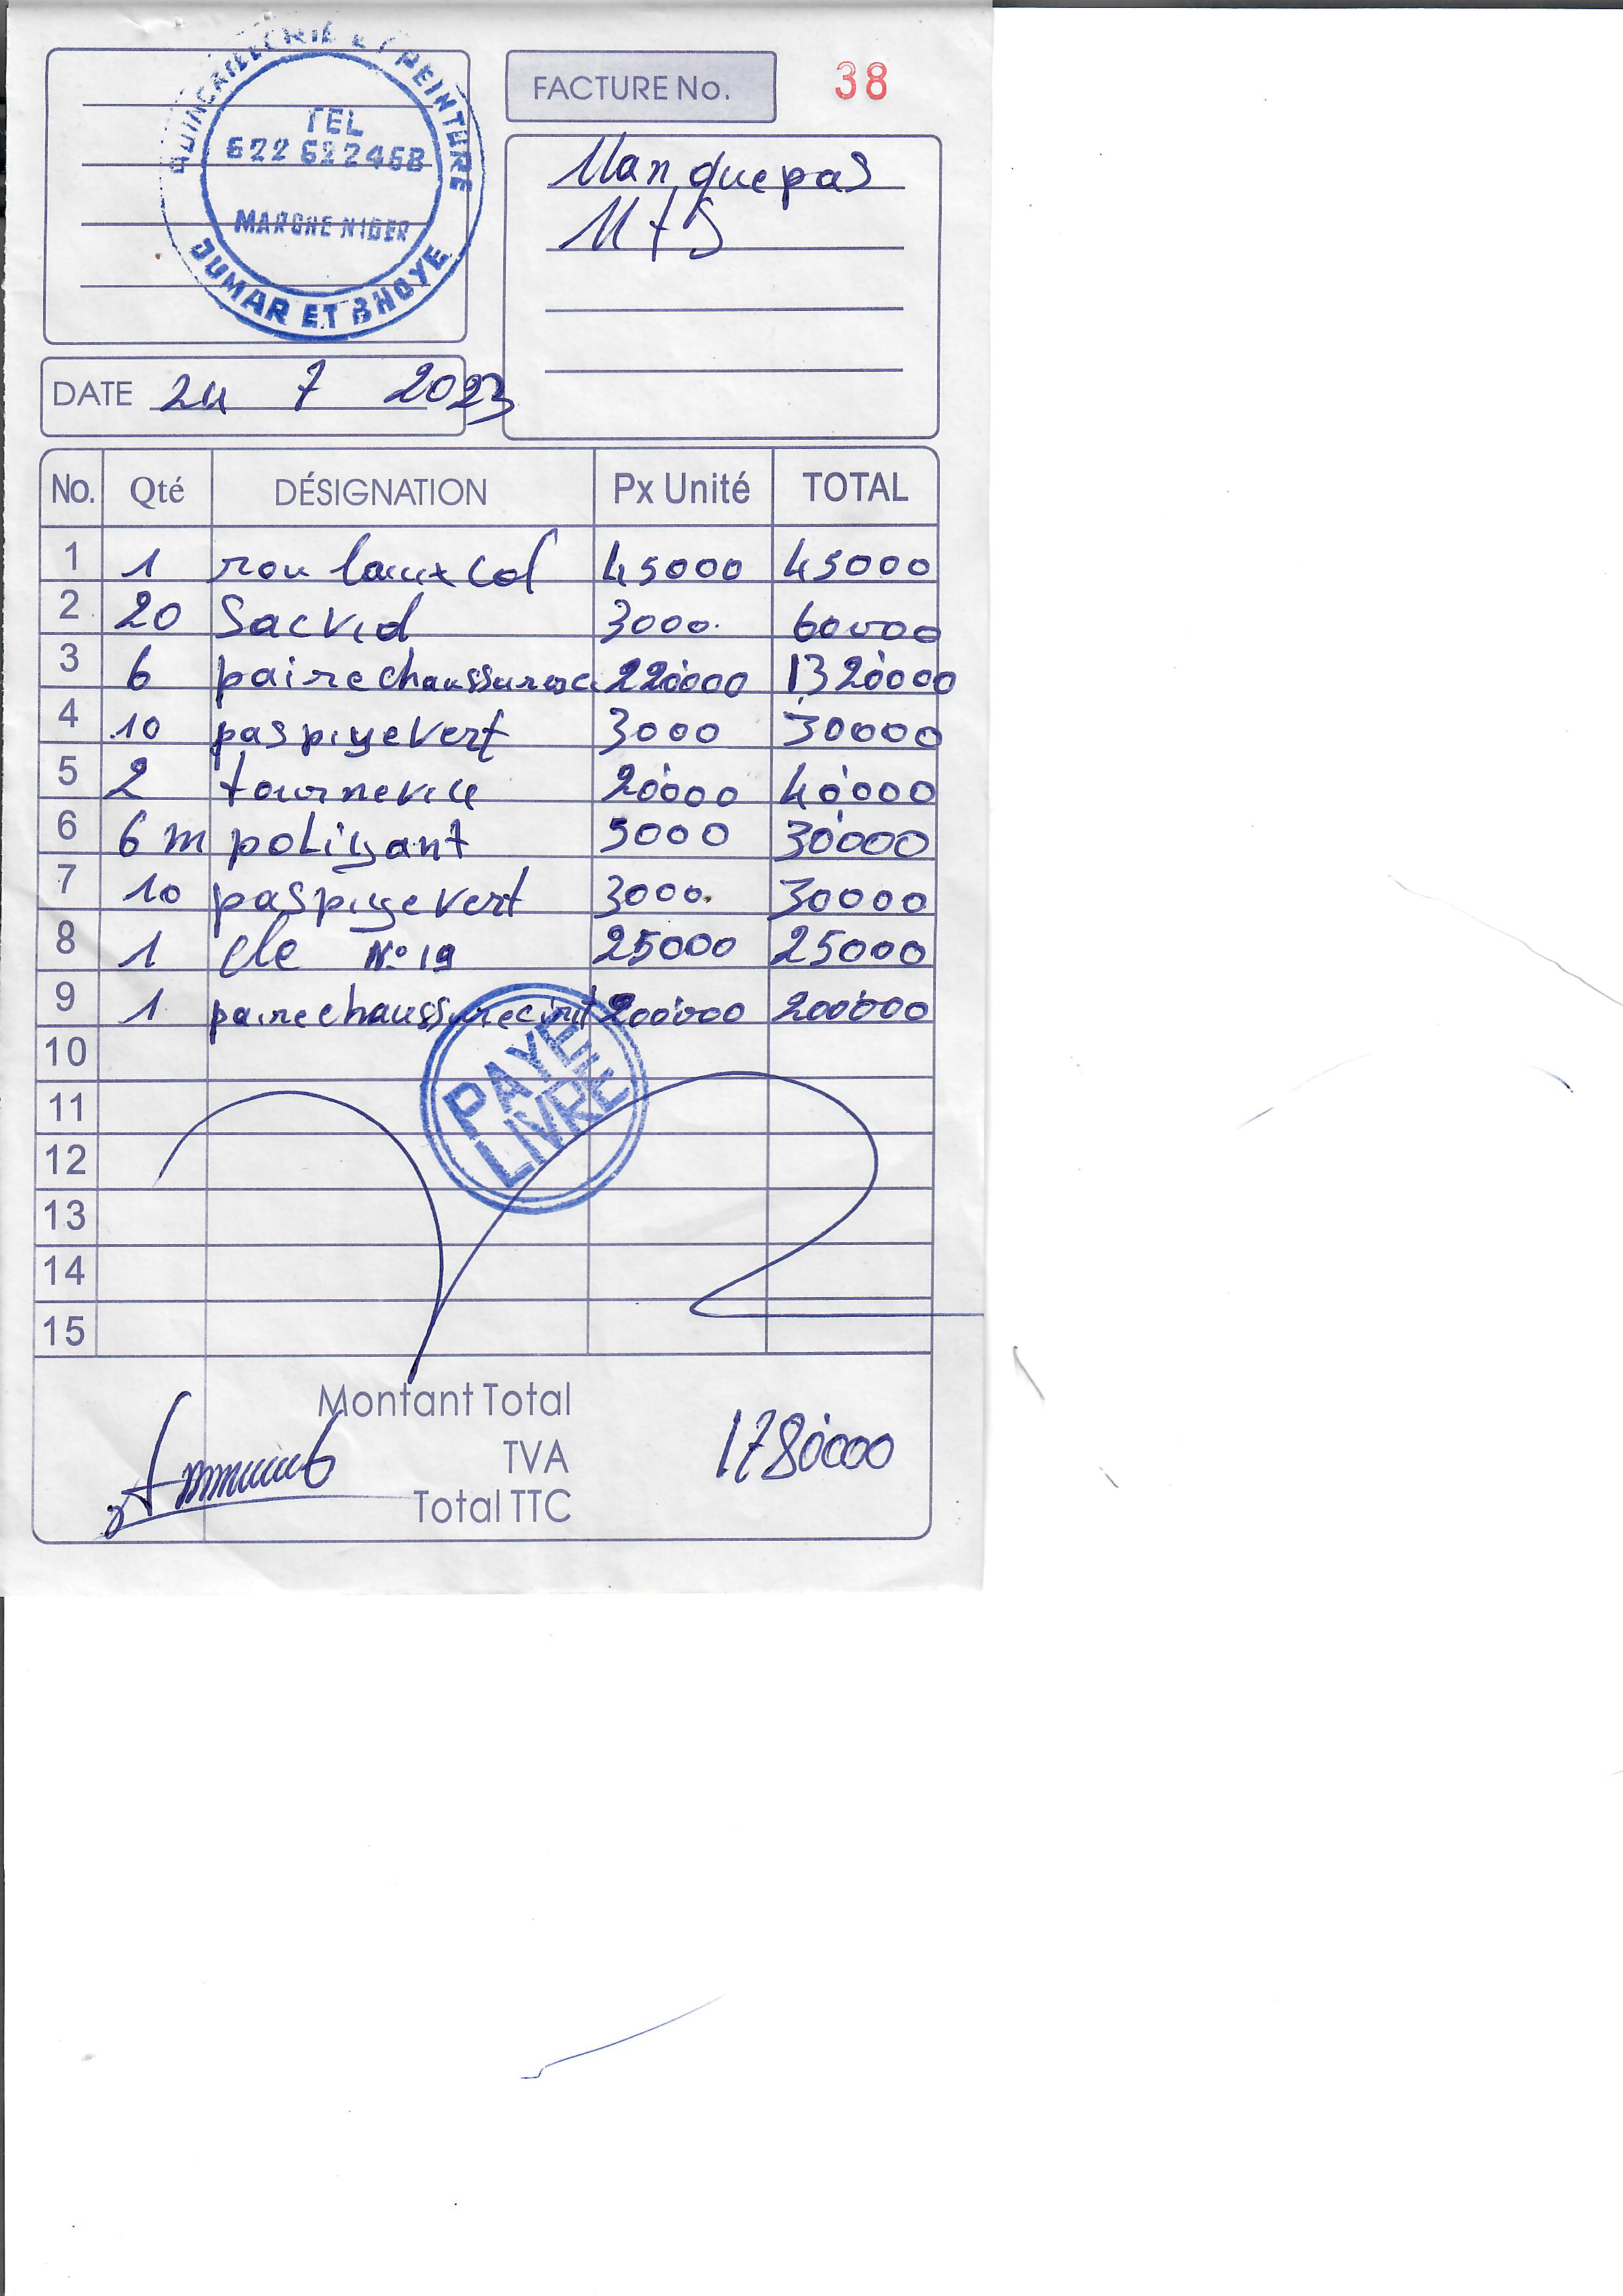 QUINCAILLERIE ET PEINTURE
TEL
622 622468
MARCHE NIGER
OUMAR ET BHOYE
FACTURE No. 38
Manquepas
DATE 24 7 2023
No. Qté DÉSIGNATION Px Unité TOTAL
1 1 roulaux col 45000 45000
2 20 Sac vid 3000 60000
3 6 paire chaussures 220000 1320000
4 10 paspiye vert 3000 30000
5 2 tournevice 20000 40000
6 6 m poliyant 5000 30000
7 10 paspiye vert 3000 30000
8 1 cle N° 19 25000 25000
9 1 paire chaussure 200000 200000
10
PAYE
LIVRE
11
12
13
14
15
Montant Total
TVA 1780000
Total TTC